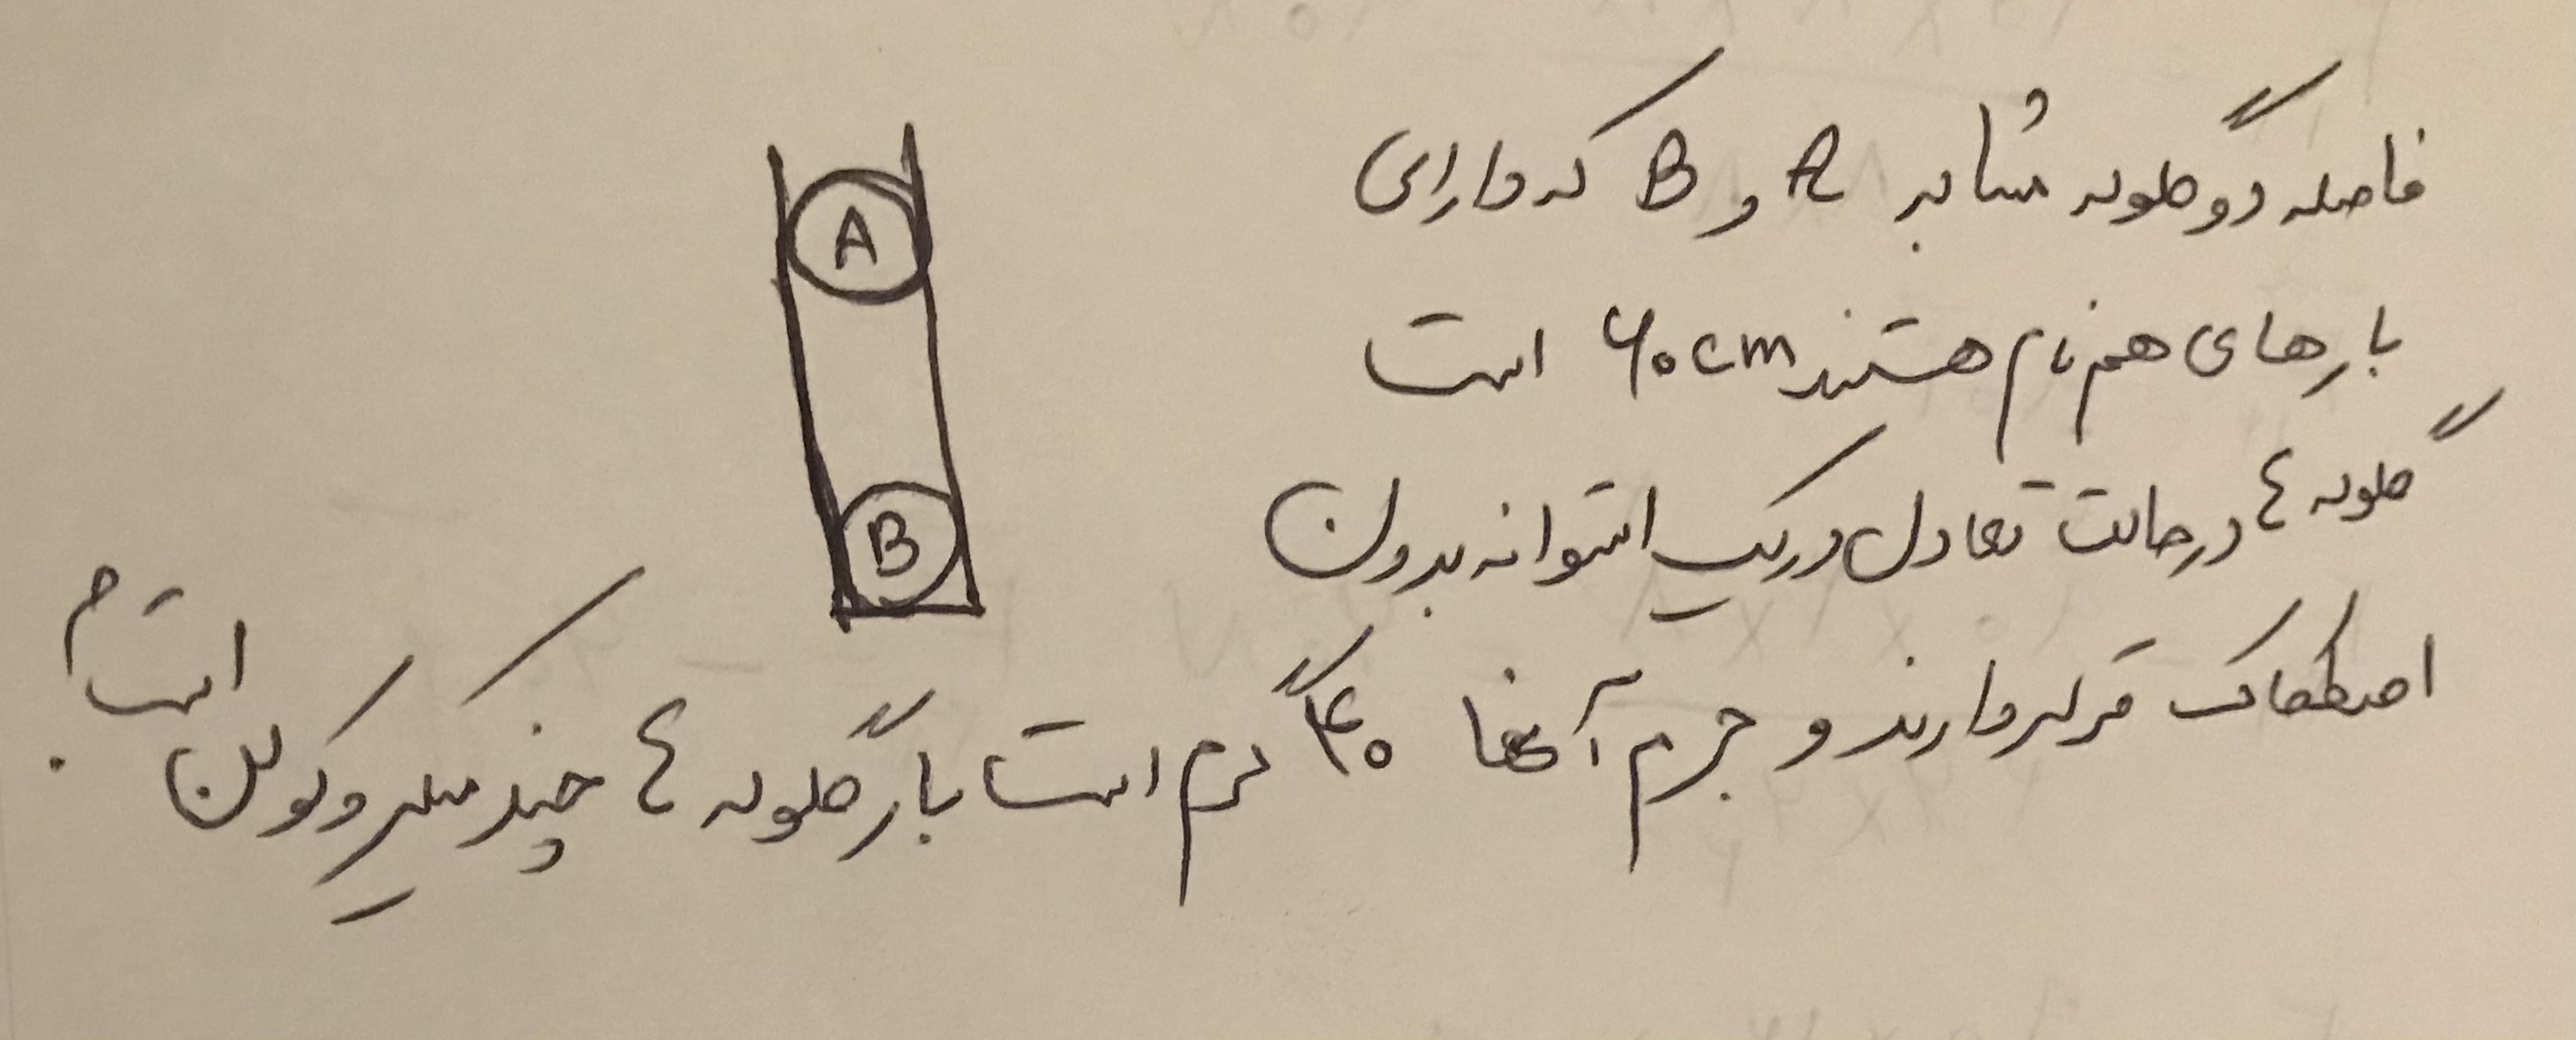 فاصله دو گلوله مشابه A و B که دارای
بارهای هم نام هستند ۶۰cm است
گلوله ها در حالت تعادل در یک استوانه بدون
اصطکاک قرار دارند و جرم آنها ۴۰ گرم است بار گلوله ها چند میکروکولن است؟
A
B